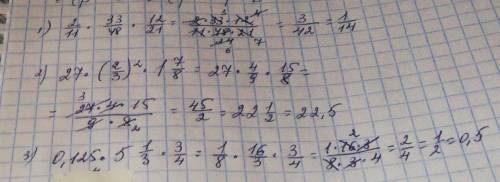 1) 2/11 · 33/48 · 12/21 = 2·33·12/11·48·21 = 3/42 = 1/14
2) 27 · (2/3)² · 1 7/8 = 27 · 4/9 · 15/8 =
= 27·4·15/9·8 = 45/2 = 22 1/2 = 22,5
3) 0,125 · 5 1/3 · 3/4 = 1/8 · 16/3 · 3/4 = 1·16·3/8·3·4 = 2/4 = 1/2 = 0,5